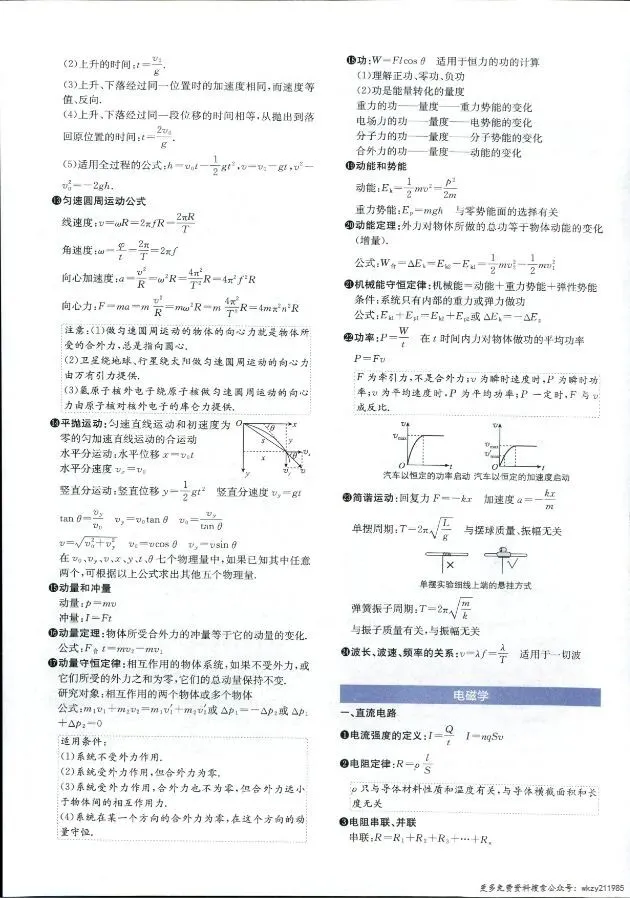 (2)上升的时间:t=v₀/g.
(3)上升、下落经过同一位置时的加速度相同,而速度等
值、反向.
(4)上升、下落经过同一段位移的时间相等,从抛出到落
回原位置的时间:t=2v₀/g.
(5)适用全过程的公式:h=v₀t-1/2gt²,v=v₀-gt,v²-
v₀²=-2gh.
⓭匀速圆周运动公式
线速度:v=ωR=2πfR=2πR/T
角速度:ω=φ/t=2π/T=2πf
向心加速度:a=v²/R=ω²R=4π²/T²R=4π²f²R
向心力:F=ma=mv²/R=mω²R=m4π²/T²R=4mπ²n²R
注意:(1)做匀速圆周运动的物体的向心力就是物体所
受的合外力,总是指向圆心.
(2)卫星绕地球、行星绕太阳做匀速圆周运动的向心力
由万有引力提供.
(3)氢原子核外电子绕原子核做匀速圆周运动的向心
力由原子核对核外电子的库仑力提供.
⓮平抛运动:匀速直线运动和初速度为
零的匀加速直线运动的合运动
水平分运动:水平位移 x=v₀t
水平分速度 vₓ=v₀
竖直分运动:竖直位移 y=1/2gt² 竖直分速度 vᵧ=gt
tan θ=vᵧ/v₀ vᵧ=v₀tan θ v₀=vᵧ/tan θ
v=√(v₀²+vᵧ²) v₀=vcos θ vᵧ=vsin θ
在 v₀、vᵧ、v、x、y、t、θ 七个物理量中,如果已知其中任意
两个,可根据以上公式求出其他五个物理量.
O x y θ x s y vₓ vᵧ v
⓯动量和冲量
动量:p=mv
冲量:I=Ft
⓰动量定理:物体所受合外力的冲量等于它的动量的变化.
公式:F合 t=mv₂-mv₁
⓱动量守恒定律:相互作用的物体系统,如果不受外力,或
它们所受的外力之和为零,它们的总动量保持不变.
研究对象:相互作用的两个物体或多个物体
公式:m₁v₁+m₂v₂=m₁v₁′+m₂v₂′或 Δp₁=-Δp₂或 Δp₁
+Δp₂=0
适用条件:
(1)系统不受外力作用.
(2)系统受外力作用,但合外力为零.
(3)系统受外力作用,合外力也不为零,但合外力远小
于物体间的相互作用力.
(4)系统在某一个方向的合外力为零,在这个方向的动
量守恒.
⓲功:W=Flcos θ 适用于恒力的功的计算
(1)理解正功、零功、负功
(2)功是能量转化的量度
重力的功——量度——重力势能的变化
电场力的功——量度——电势能的变化
分子力的功——量度——分子势能的变化
合外力的功——量度——动能的变化
⓳动能和势能
动能:Eₖ=1/2mv²=p²/2m
重力势能:Eₚ=mgh 与零势能面的选择有关
⓴动能定理:外力对物体所做的总功等于物体动能的变化
(增量).
公式:W合=ΔEₖ=Eₖ₂-Eₖ₁=1/2mv₂²-1/2mv₁²
㉑机械能守恒定律:机械能=动能+重力势能+弹性势能
条件:系统只有内部的重力或弹力做功
公式:Eₖ₁+Eₚ₁=Eₖ₂+Eₚ₂或 ΔEₖ=-ΔEₚ
㉒功率:P=W/t 在 t 时间内力对物体做功的平均功率
P=Fv
F 为牵引力,不是合外力;v 为瞬时速度时,P 为瞬时功
率;v 为平均速度时,P 为平均功率;P 一定时,F 与 v
成反比.
v vmax O t v vmax O t
汽车以恒定的功率启动 汽车以恒定的加速度启动
㉓简谐运动:回复力 F=-kx 加速度 a=-kx/m
单摆周期:T=2π√(L/g) 与摆球质量、振幅无关
× √
单摆实验细线上端的悬挂方式
弹簧振子周期:T=2π√(m/k)
与振子质量有关,与振幅无关
㉔波长、波速、频率的关系:v=λf=λ/T 适用于一切波
电磁学
一、直流电路
❶电流强度的定义:I=Q/t I=nqSv
❷电阻定律:R=ρl/S
ρ 只与导体材料性质和温度有关,与导体横截面积和长
度无关
❸电阻串联、并联
串联:R=R₁+R₂+R₃+…+Rₙ
更多免费资料搜索公众号:wkzy211985